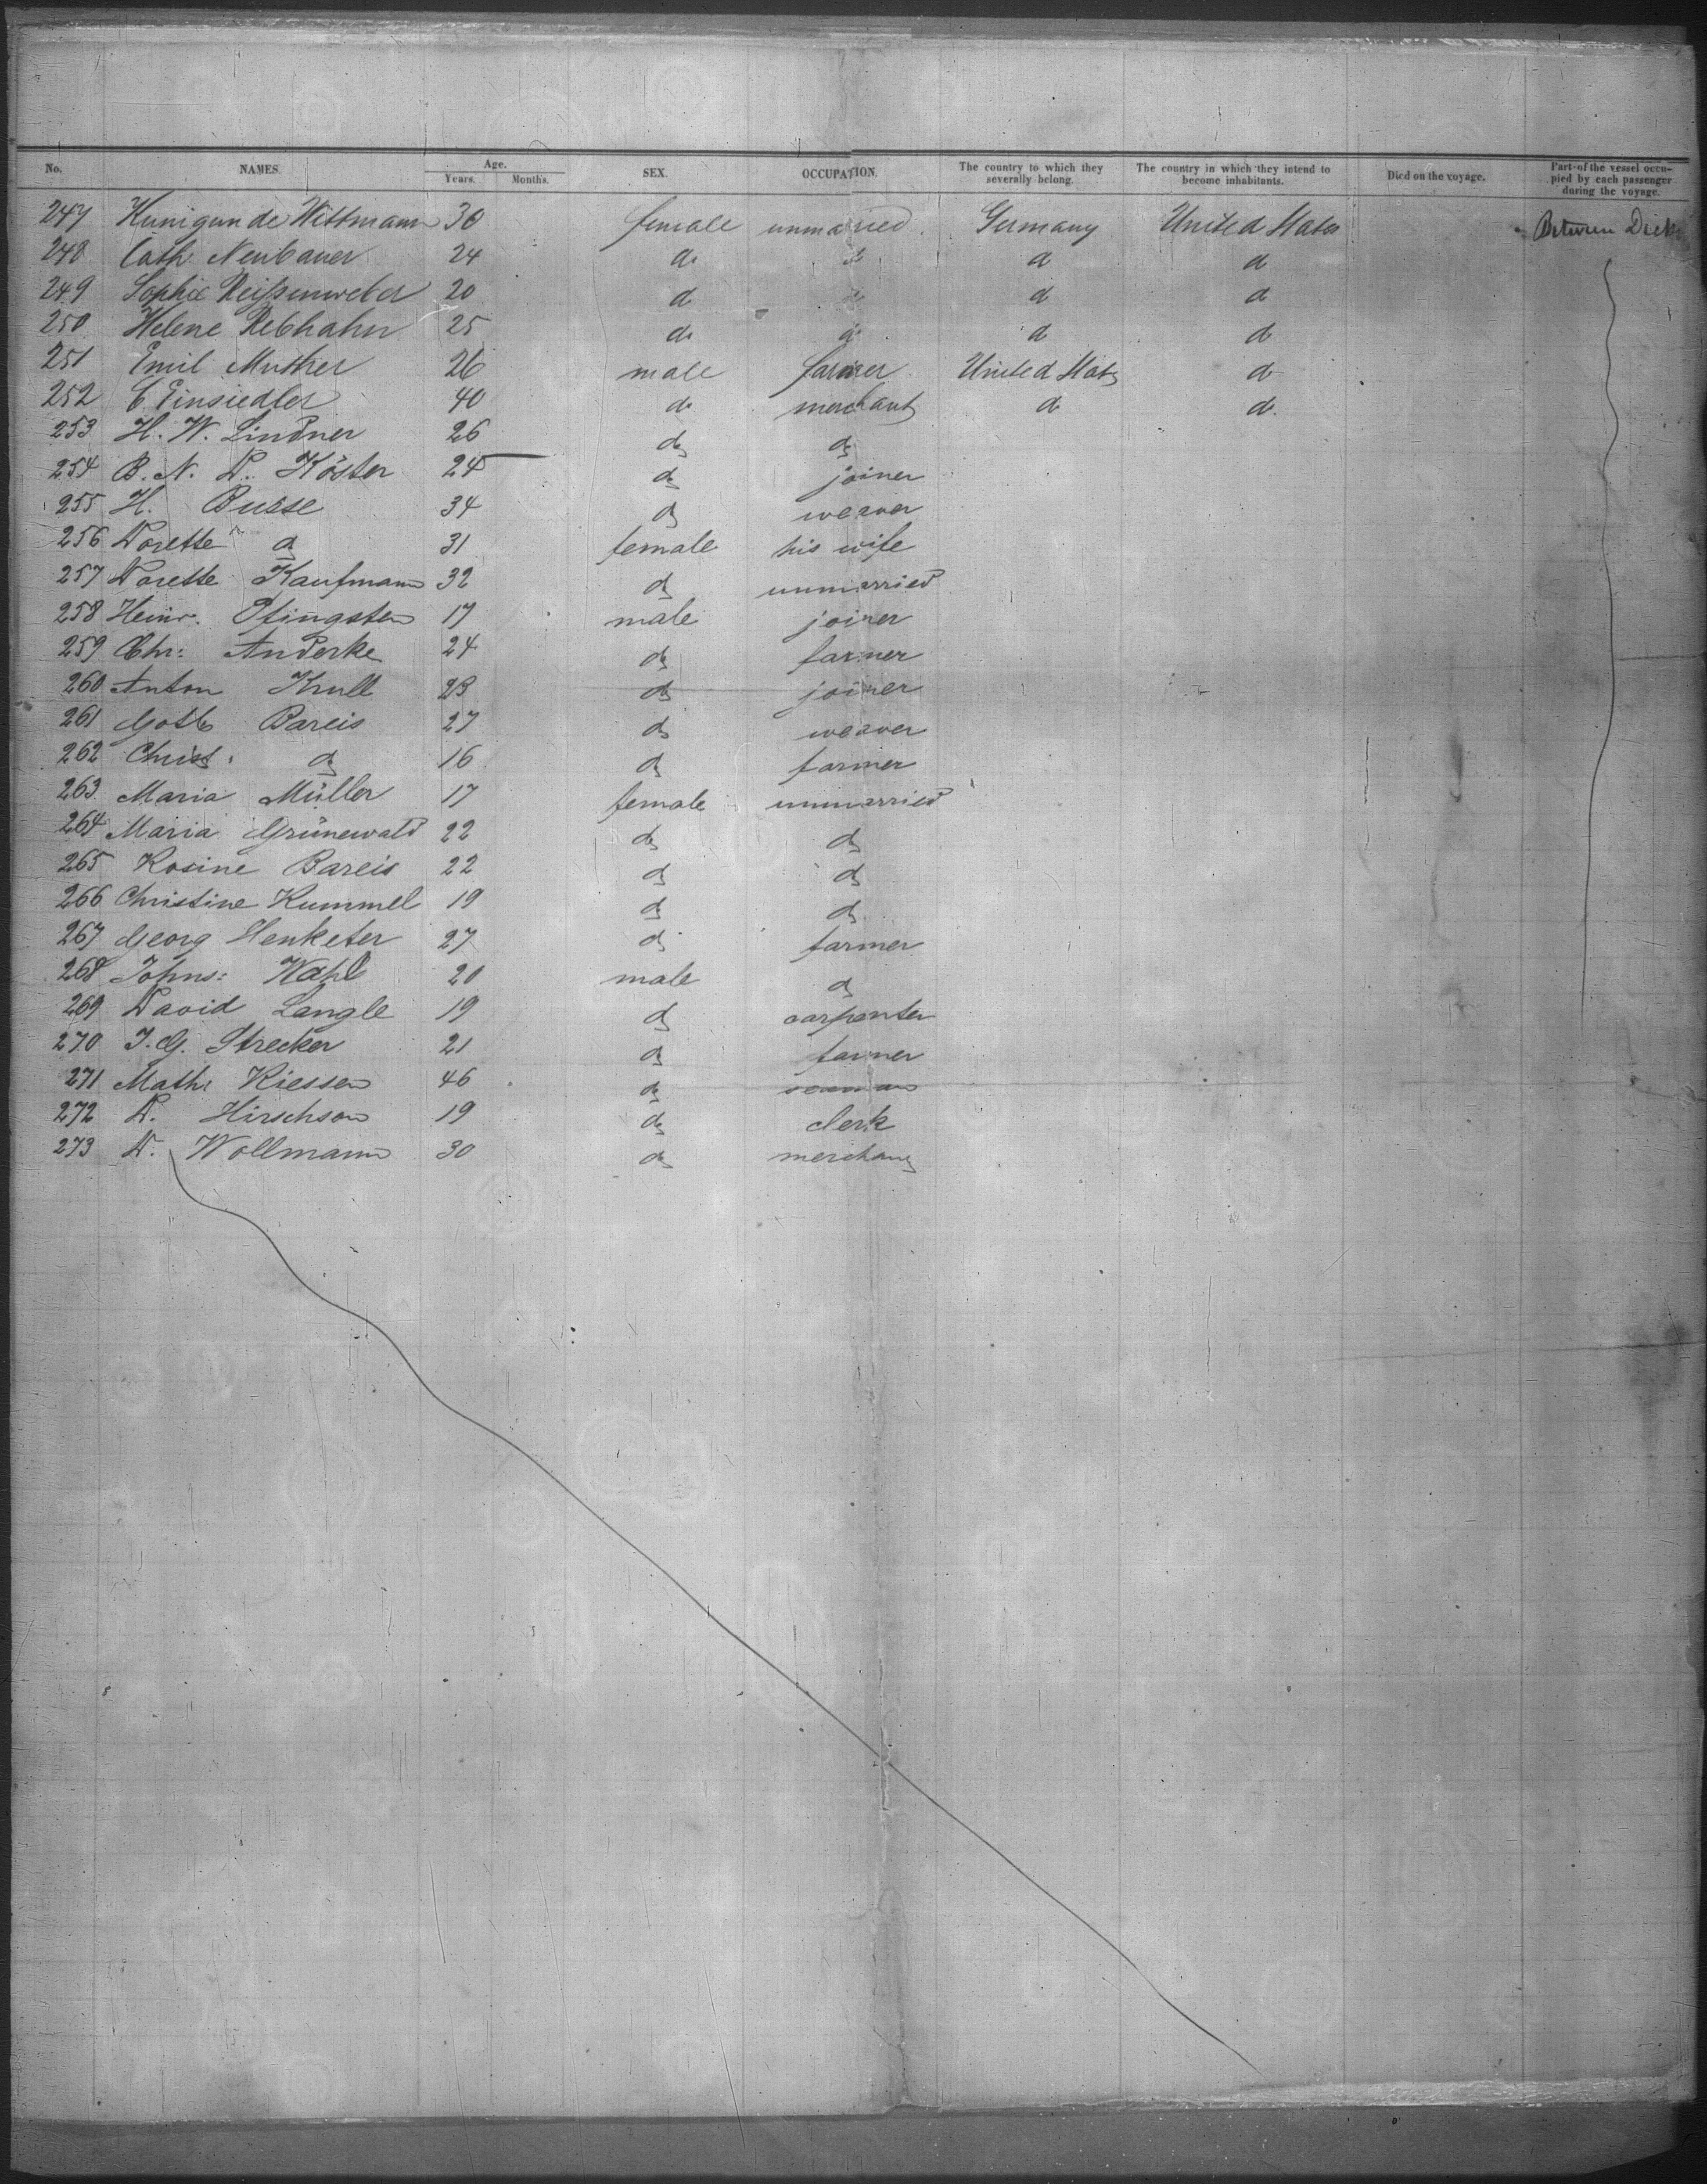 No. NAMES. Age. Years. Months. SEX. OCCUPATION. The country to which they severally belong. The country in which they intend to become inhabitants. Died on the voyage. Part of the vessel occupied by each passenger during the voyage.
247 Kunigunde Wittmann 30 female unmarried Germany United States Between Deck
248 Cath. Neubauer 24 do do do do
249 Sophie Reißenweber 20 do do do do
250 Helene Rebhahn 25 do do do do
251 Emil Muther 26 male farmer United States do
252 C Einsiedler 40 do merchant do do
253 H. W. Lindner 26 do do
254 B. N. D. Köster 24 do joiner
255 H. Busse 34 do weaver
256 Dorette do 31 female his wife
257 Dorette Kaufmann 32 do unmarried
258 Heinr. Pfingsten 17 male joiner
259 Chr: Anderke 24 do farmer
260 Anton Krull 23 do joiner
261 Gottl Bareis 27 do weaver
262 Christ. do 16 do farmer
263 Maria Müller 17 female unmarried
264 Maria Grünewald 22 do do
265 Rosine Bareis 22 do do
266 Christine Kummel 19 do do
267 Georg Henketer 27 do farmer
268 Johns: Wahl 20 male do
269 David Langle 19 do carpenter
270 J. G. Strecker 21 do farmer
271 Math: Kiessen 46 do seaman
272 D. Hirschson 19 do clerk
273 D. Wollmann 30 do merchant